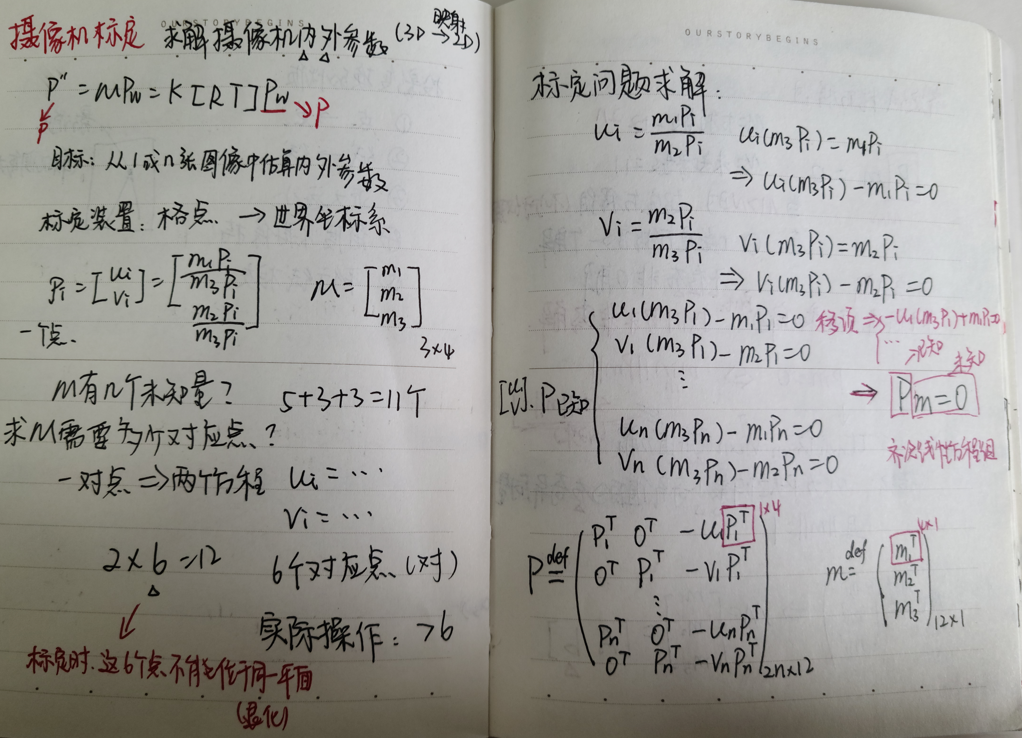 OURSTORYBEGINS
摄像机标定 求解摄像机内外参数 (3D 映射→ 2D)
P'' = MPw = K [R T] Pw → P
P
目标: 从1或n张图像中估算内外参数
标定装置: 格点 → 世界坐标系
Pi = [ui vi] = [m1Pi/m3Pi m2Pi/m3Pi] M = [m1 m2 m3] 3×4
一个点.
M有几个未知量? 5+3+3=11个
求M需要多少个对应点?
一对点 ⇒ 两个方程 ui = ⋯
vi = ⋯
2×6 =12 6个对应点 (对)
实际操作: >6
标定时,这6个点不能也位于同一平面
(退化)
OURSTORYBEGINS
标定问题求解:
ui = m1Pi/m2Pi ui(m3Pi) = m1Pi
⇒ ui(m3Pi) - m1Pi = 0
Vi = m2Pi/m3Pi Vi(m3Pi) = m2Pi
⇒ Vi(m3Pi) - m2Pi = 0
u1(m3P1) - m1P1 = 0 移项 ⇒ -u1(m3P1)+m1P1=0
V1(m3P1) - m2P1 = 0 ⋯ → 已知 未知
⋮
[ui vi]. P已知 ⇒ Pm=0
un(m3Pn) - m1Pn = 0 齐次线性方程组
Vn(m3Pn) - m2Pn = 0
P def= (P1^T 0^T -u1P1^T 1×4
0^T P1^T -v1P1^T
⋮
Pn^T 0^T -unPn^T
0^T Pn^T -vnPn^T) 2n×12
m def= (m1^T 4×1
m2^T
m3^T) 12×1